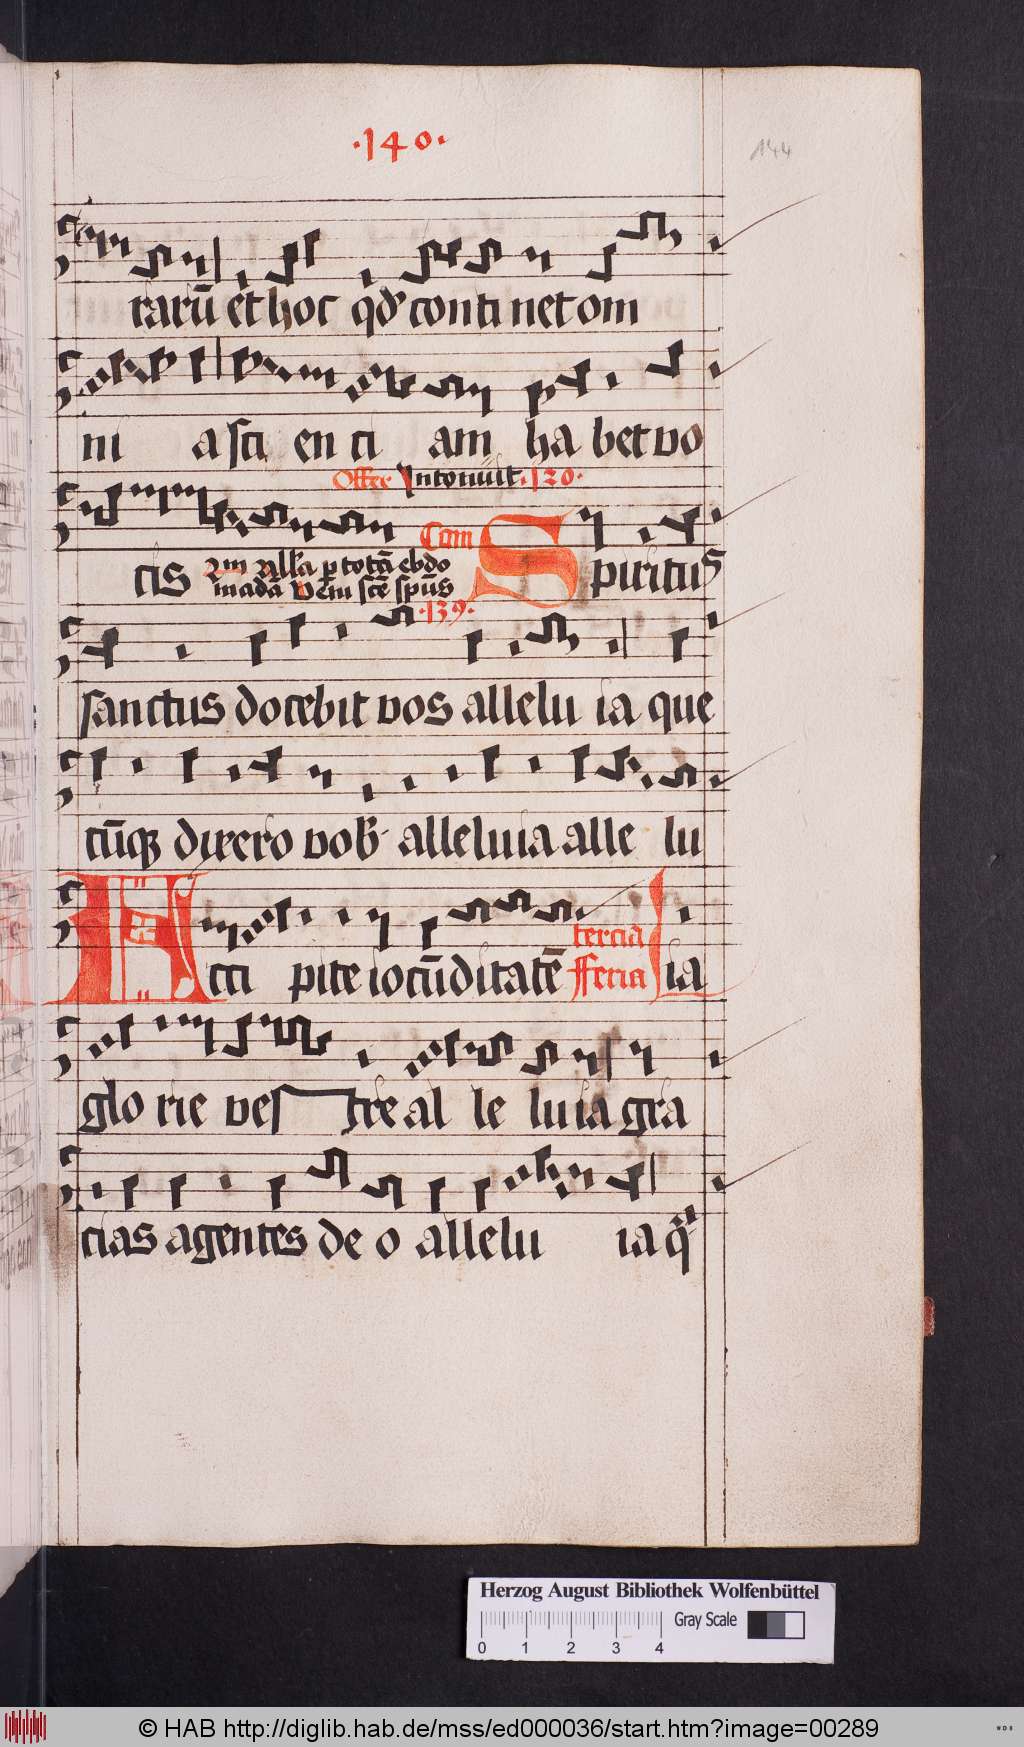 ·140·
144
rarū et hoc qď continet om
ni a sci en ci am ha bet vo
Offer Intonuit ·120·
cis 2m alla p totā ebdo Com Spiritus
madā Veni scē spūs
·139·
sanctus docebit vos allelu ia que
cūqꝫ dixero vob alleluia alle lu
tercia
Acci pite iocūditatē fferia ia
glo rie ves tre al le luia gra
cias agentes de o allelu ia q
Herzog August Bibliothek Wolfenbüttel
Gray Scale
0 1 2 3 4
© HAB http://diglib.hab.de/mss/ed000036/start.htm?image=00289